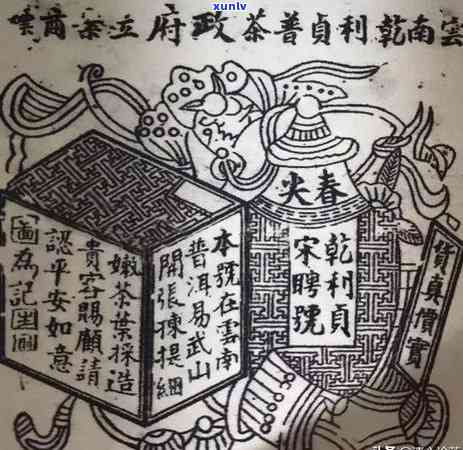 xunlv
雲南乾利貞普茶政府立案商嘜
春尖
乾利貞
宋聘號
貨真價實
本號在雲南
普洱易武山
開張揀提細
嫩茶葉採造
貴客賜顧請
認平安如意
圖為記